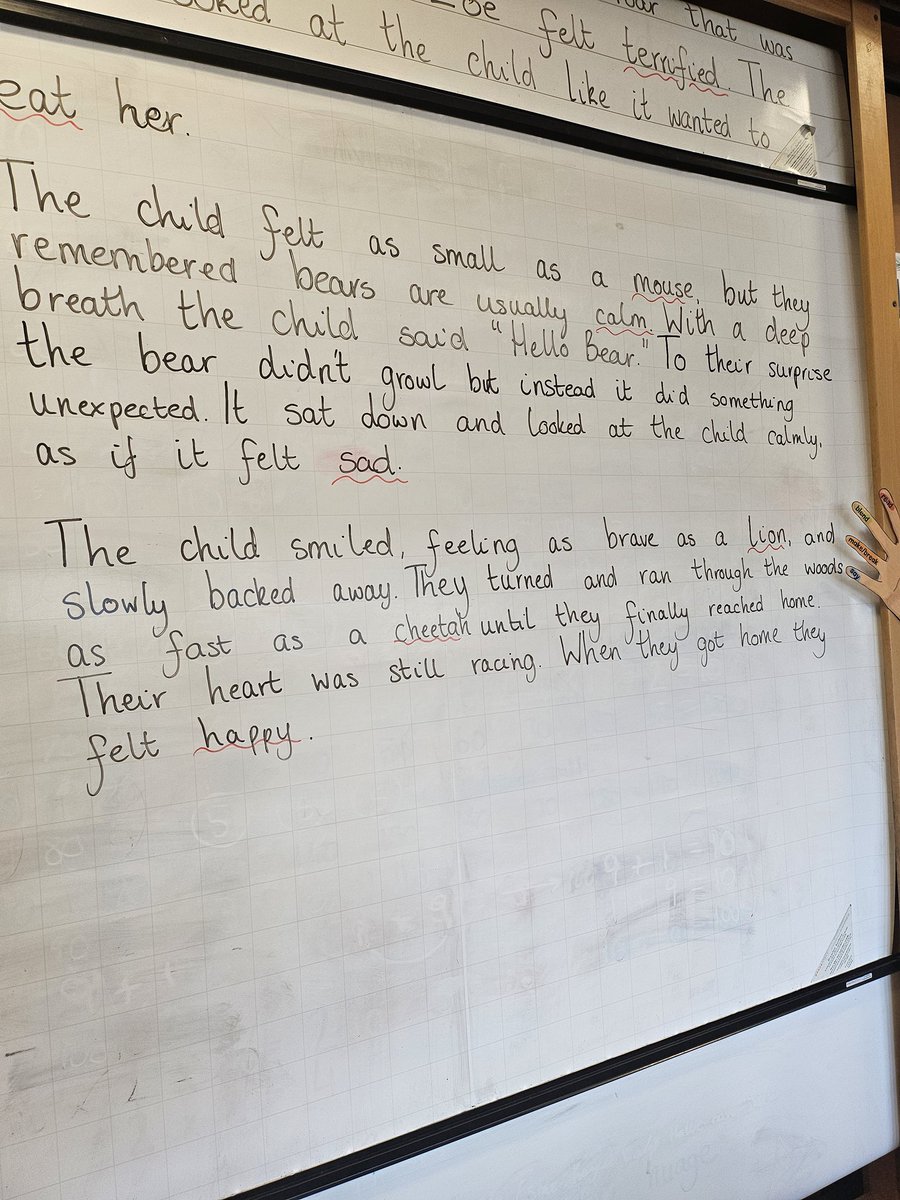 that was
felt terrified. The
looked at the child like it wanted to
eat her.
The child felt as small as a mouse, but they
remembered bears are usually calm. With a deep
breath the child said "Hello Bear." To their surprise
the bear didn't growl but instead it did something
unexpected. It sat down and looked at the child calmly,
as if it felt sad.
The child smiled, feeling as brave as a lion, and
slowly backed away. They turned and ran through the woods
as fast as a cheetah until they finally reached home.
Their heart was still racing. When they got home they
felt happy.
read
blend
make/break
say